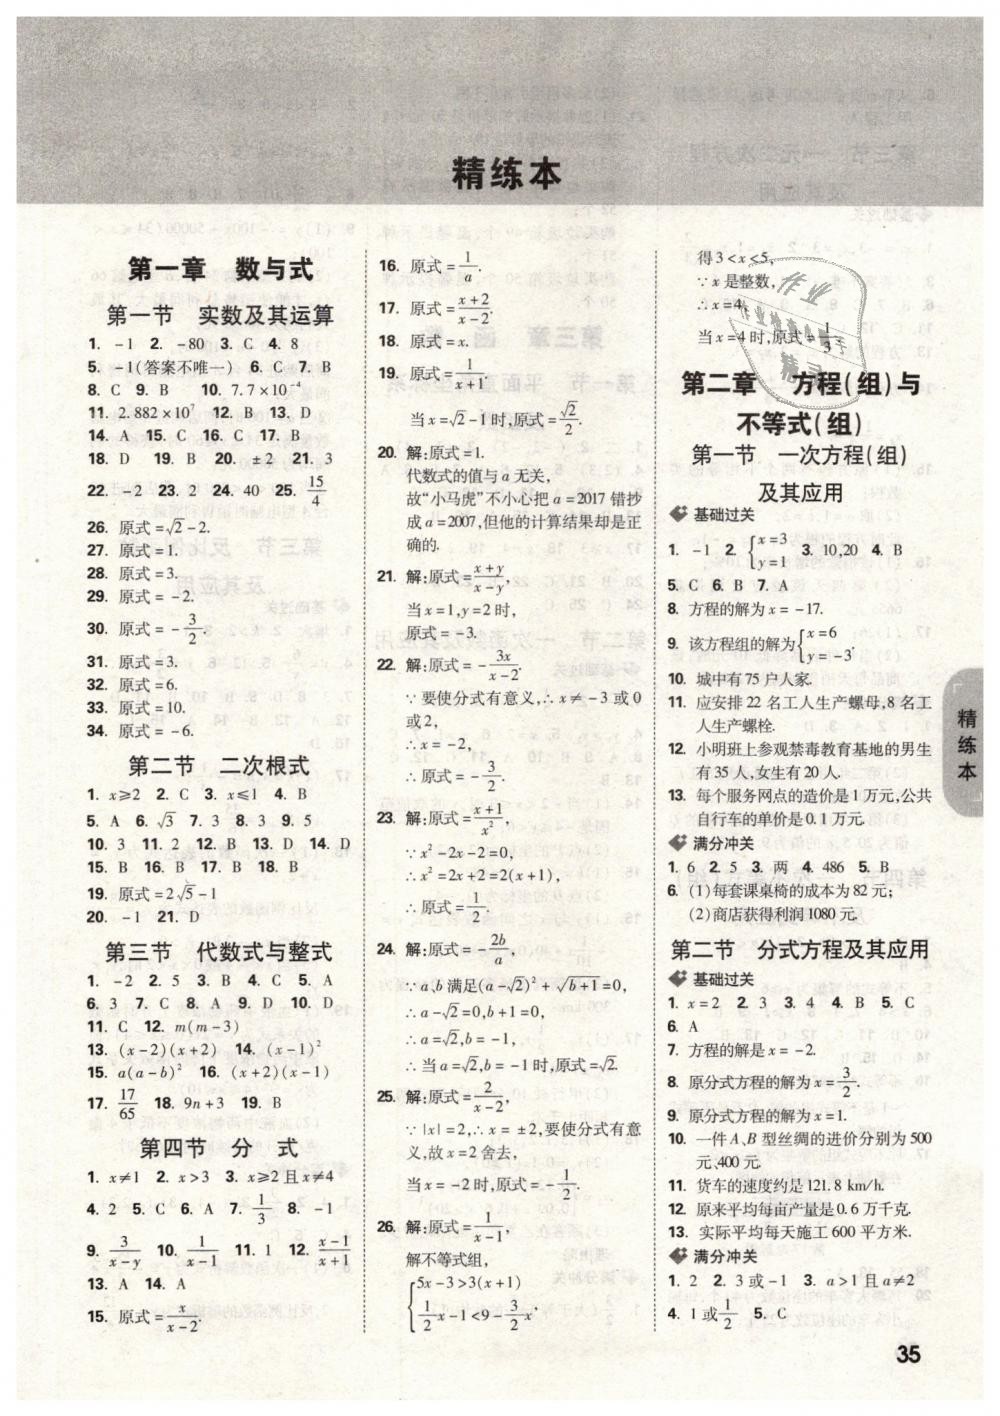 精练本
第一章 数与式
第一节 实数及其运算
1. -1 2. -80 3. C 4. 8
5. -1(答案不唯一) 6. C 7. B
8. C 9. B 10. 7.7×10⁻⁴
11. 2.882×10⁷ 12. B 13. D
14. A 15. C 16. C 17. B
18. D 19. B 20. ±2 21. 3
22. -2 23. 2 24. 40 25. 15/4
26. 原式=√2-2.
27. 原式=1.
28. 原式=3.
29. 原式=-2.
30. 原式=-3/2.
31. 原式=3.
32. 原式=6.
33. 原式=10.
34. 原式=-6.
第二节 二次根式
1. x≥2 2. C 3. x≤1 4. B
5. A 6. √3 7. 3 8. 3 9. 5
10. 3 11. 2 12. B 13. D 14. D
15. B 16. B 17. B 18. B
19. 原式=2√5-1
20. -1 21. D
第三节 代数式与整式
1. -2 2. 5 3. B 4. C 5. A
6. 3 7. C 8. A 9. D 10. D
11. C 12. m(m-3)
13. (x-2)(x+2) 14. (x-1)²
15. a(a-b)² 16. (x+2)(x-1)
17. 17/65 18. 9n+3 19. B
第四节 分 式
1. x≠1 2. x>3 3. x≥2且x≠4
4. 2 5. C 6. A 7. 1/3 8. -1
9. 3/(x-y) 10. 1/(x-1) 11. 1 12. (x-1)/(x+1)
13. A 14. A
15. 原式=x/(x-2).
16. 原式=1/a.
17. 原式=(x+2)/(x-2).
18. 原式=x.
19. 原式=1/(x+1).
当x=√2-1时,原式=√2/2.
20. 解:原式=1.
代数式的值与a无关,
故“小马虎”不小心把a=2017错抄
成a=2007,但他的计算结果却是正
确的.
21. 解:原式=(x+y)/(x-y),
当x=1,y=2时,
原式=-3.
22. 解:原式=-3x/(x-2).
∵要使分式有意义,∴x≠-3或0
或2,
∴x=-2,
∴原式=-3/2.
23. 解:原式=(x+1)/x²,
∵x²-2x-2=0,
∴x²=2x+2=2(x+1),
∴原式=1/2.
24. 解:原式=-2b/a,
∵a,b满足(a-√2)²+√(b+1)=0,
∴a-√2=0,b+1=0,
∴a=√2,b=-1,
∴当a=√2,b=-1时,原式=√2.
25. 解:原式=2/(x-2),
∵|x|=2,∴x=±2,要使分式有意
义,故x=2舍去,
当x=-2时,原式=-1/2.
26. 解:原式=1/(x-1),
解不等式组,
{5x-3>3(x+1)
1/2x-1<9-3/2x'
得3<x<5,
∵x是整数,
∴x=4,
当x=4时,原式=1/3.
第二章 方程(组)与
不等式(组)
第一节 一次方程(组)
及其应用
基础过关
1. -1 2. {x=3 y=1 3. 10,20 4. B
5. C 6. B 7. A
8. 方程的解为x=-17.
9. 该方程组的解为{x=6 y=-3.
10. 城中有75户人家.
11. 应安排22名工人生产螺母,8名工
人生产螺栓.
12. 小明班上参观禁毒教育基地的男生
有35人,女生有20人.
13. 每个服务网点的造价是1万元,公共
自行车的单价是0.1万元.
满分冲关
1. 6 2. 5 3. 两 4. 486 5. B
6. (1)每套课桌椅的成本为82元;
(2)商店获得利润1080元.
第二节 分式方程及其应用
基础过关
1. x=2 2. 3 3. 4 4. B 5. C
6. A
7. 方程的解是x=-2.
8. 原分式方程的解为x=3/2.
9. 原分式方程的解为x=1.
10. 一件A、B型丝绸的进价分别为500
元、400元.
11. 货车的速度约是121.8 km/h.
12. 原来平均每亩产量是0.6万千克.
13. 实际平均每天施工600平方米.
满分冲关
1. 2 2. 3或-1 3. a>1且a≠2
4. 1或1/2 5. C
精练本
35